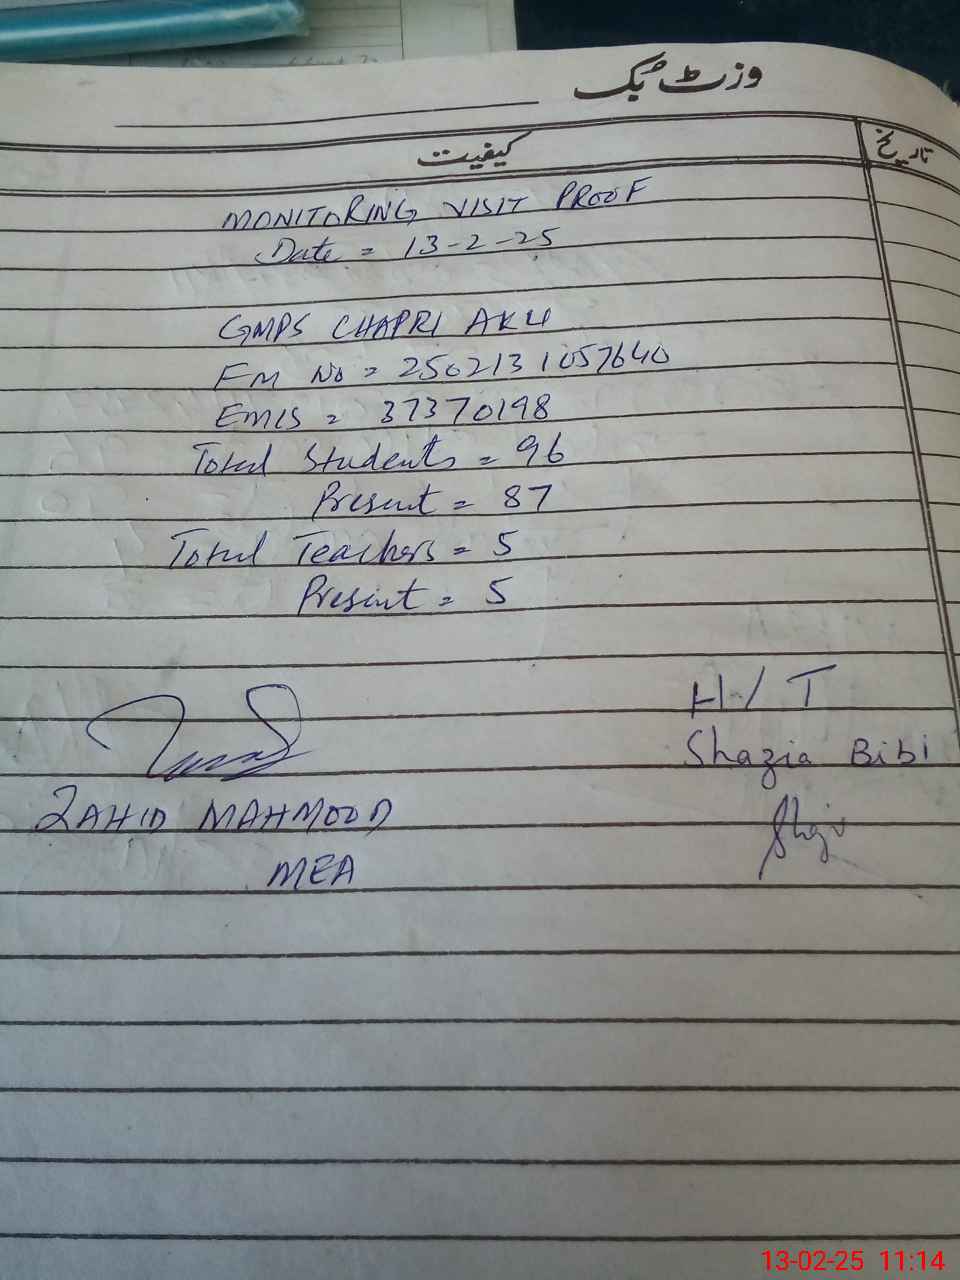 وزٹ بک
کیفیت
تاریخ
MONITORING VISIT PROOF
Date = 13-2-25
GMPS CHAPRI AKU
FM No = 2502131057640
EMIS = 37370198
Total Students = 96
Present = 87
Total Teachers = 5
Present = 5
H/T
Shazia Bibi
ZAHID MAHMOOD
MEA
13-02-25 11:14